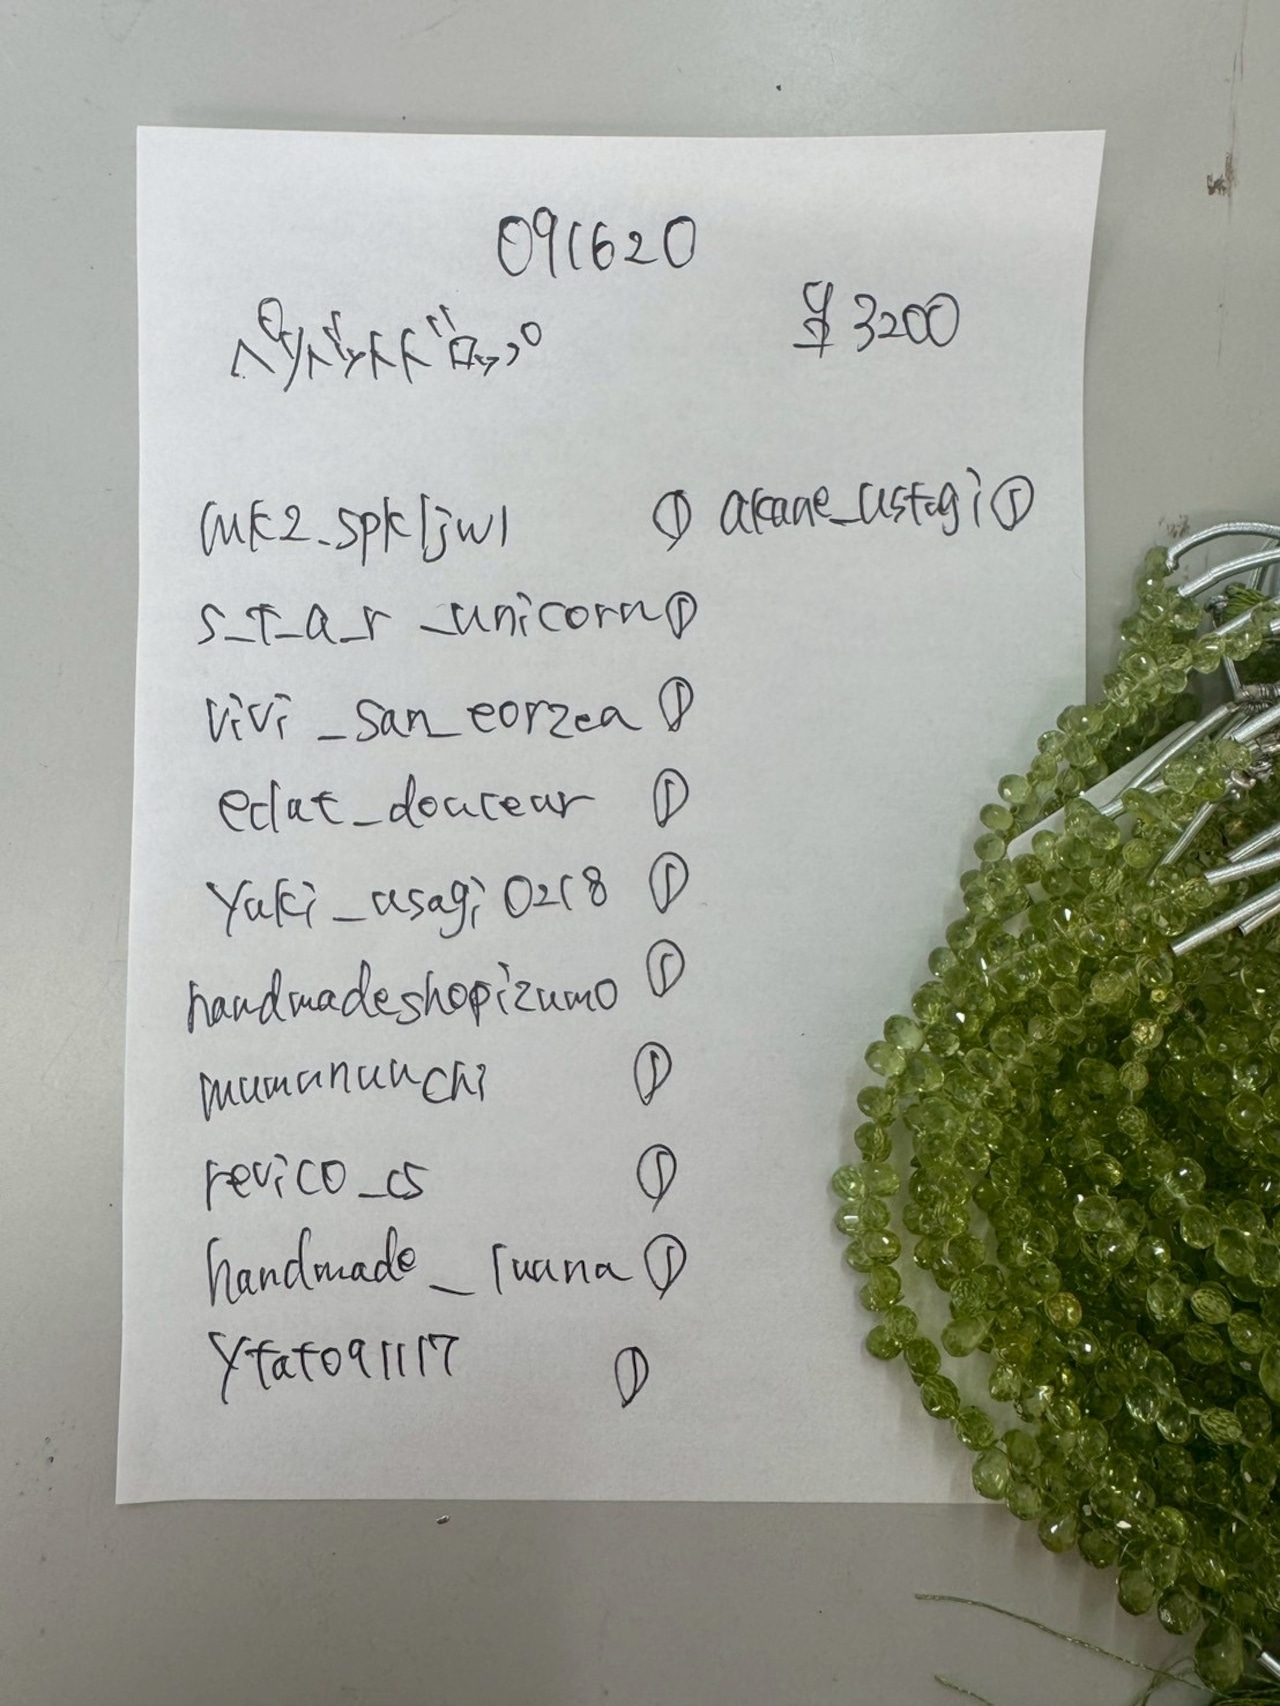 091620
ペリドットドロップ
¥3200
muk2_spkljwl ①
akane_usagi ①
s_t_a_r_unicorn ①
vivi_san_eorzea ①
eclat_douceur ①
yuki_usagi0218 ①
handmadeshopizumo ①
mumunuuchi ①
revico_cs ①
handmade_luana ①
ytat091117 ①